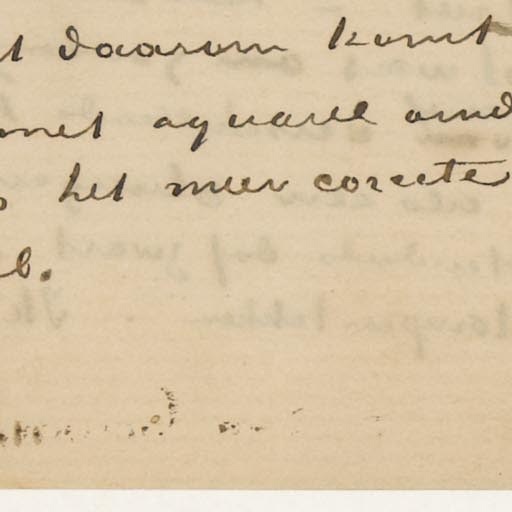 t daarom komt
met aquarel omd
het meer corecte
b.